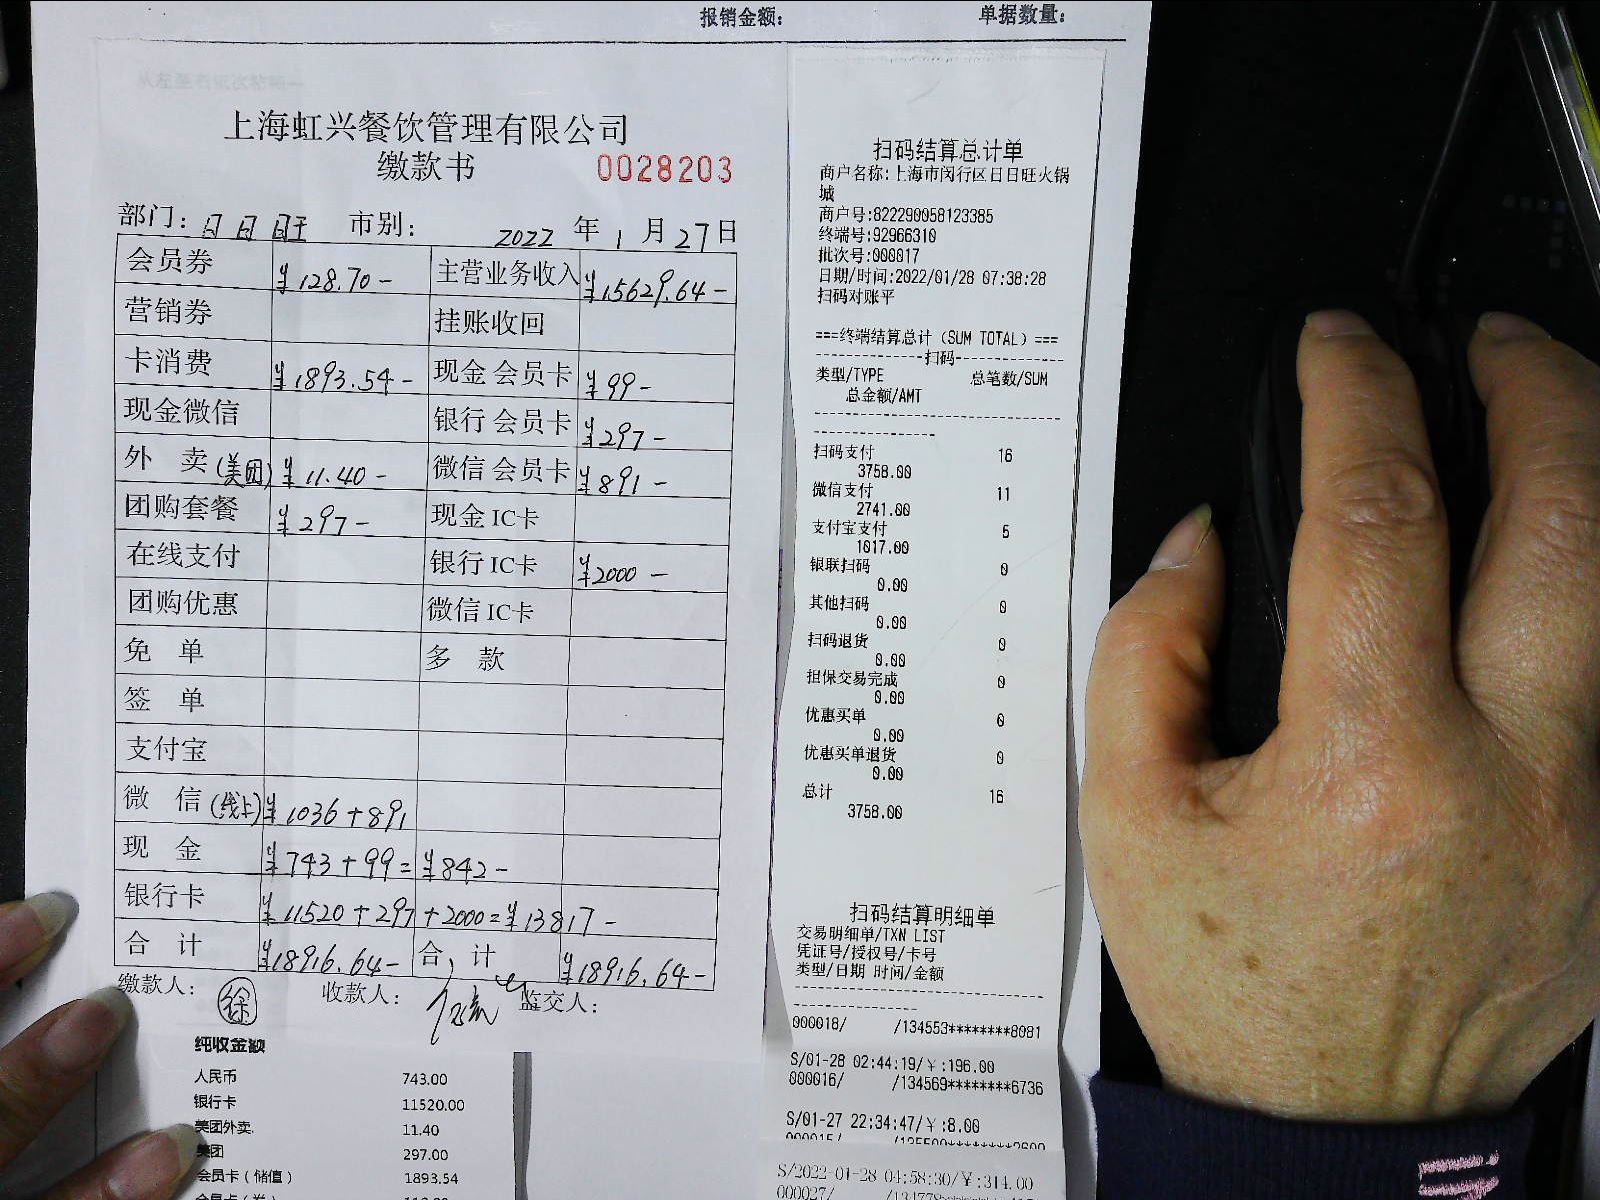 报销金额:
单据数量:
上海虹兴餐饮管理有限公司
缴款书
0028203
部门: 日日旺 市别: 2022 年 1 月 27 日
会员券 ¥128.70- 主营业务收入 ¥15629.64-
营销券 挂账收回
卡消费 ¥1893.54- 现金会员卡 ¥99-
现金微信 银行会员卡 ¥297-
外 卖(美团) ¥11.40- 微信会员卡 ¥891-
团购套餐 ¥297- 现金IC卡
在线支付 银行IC卡 ¥2000-
团购优惠 微信IC卡
免 单 多 款
签 单
支付宝
微 信(线上) ¥1036+891
现 金 ¥743+99=¥842-
银行卡 ¥11520+297+2000=¥13817-
合 计 ¥18916.64- 合 计 ¥18916.64-
缴款人: 徐 收款人: 监交人:
纯收金额
人民币 743.00
银行卡 11520.00
美团外卖 11.40
美团 297.00
会员卡(储值) 1893.54
扫码结算总计单
商户名称:上海市闵行区日日旺火锅
城
商户号:822290058123385
终端号:92966310
批次号:000017
日期/时间:2022/01/28 07:38:28
扫码对账平
===终端结算总计(SUM TOTAL)===
-------------扫码-------------
类型/TYPE 总笔数/SUM
总金额/AMT
扫码支付 16
3758.00
微信支付 11
2741.00
支付宝支付 5
1017.00
银联扫码 0
0.00
其他扫码 0
0.00
扫码退货 0
0.00
担保交易完成 0
0.00
优惠买单 0
0.00
优惠买单退货 0
0.00
总计 16
3758.00
扫码结算明细单
交易明细单/TXN LIST
凭证号/授权号/卡号
类型/日期 时间/金额
000018/ /134553********8081
S/01-28 02:44:19/¥:196.00
000016/ /134569********6736
S/01-27 22:34:47/¥:8.00
S/2022-01-28 04:58:30/¥:314.00